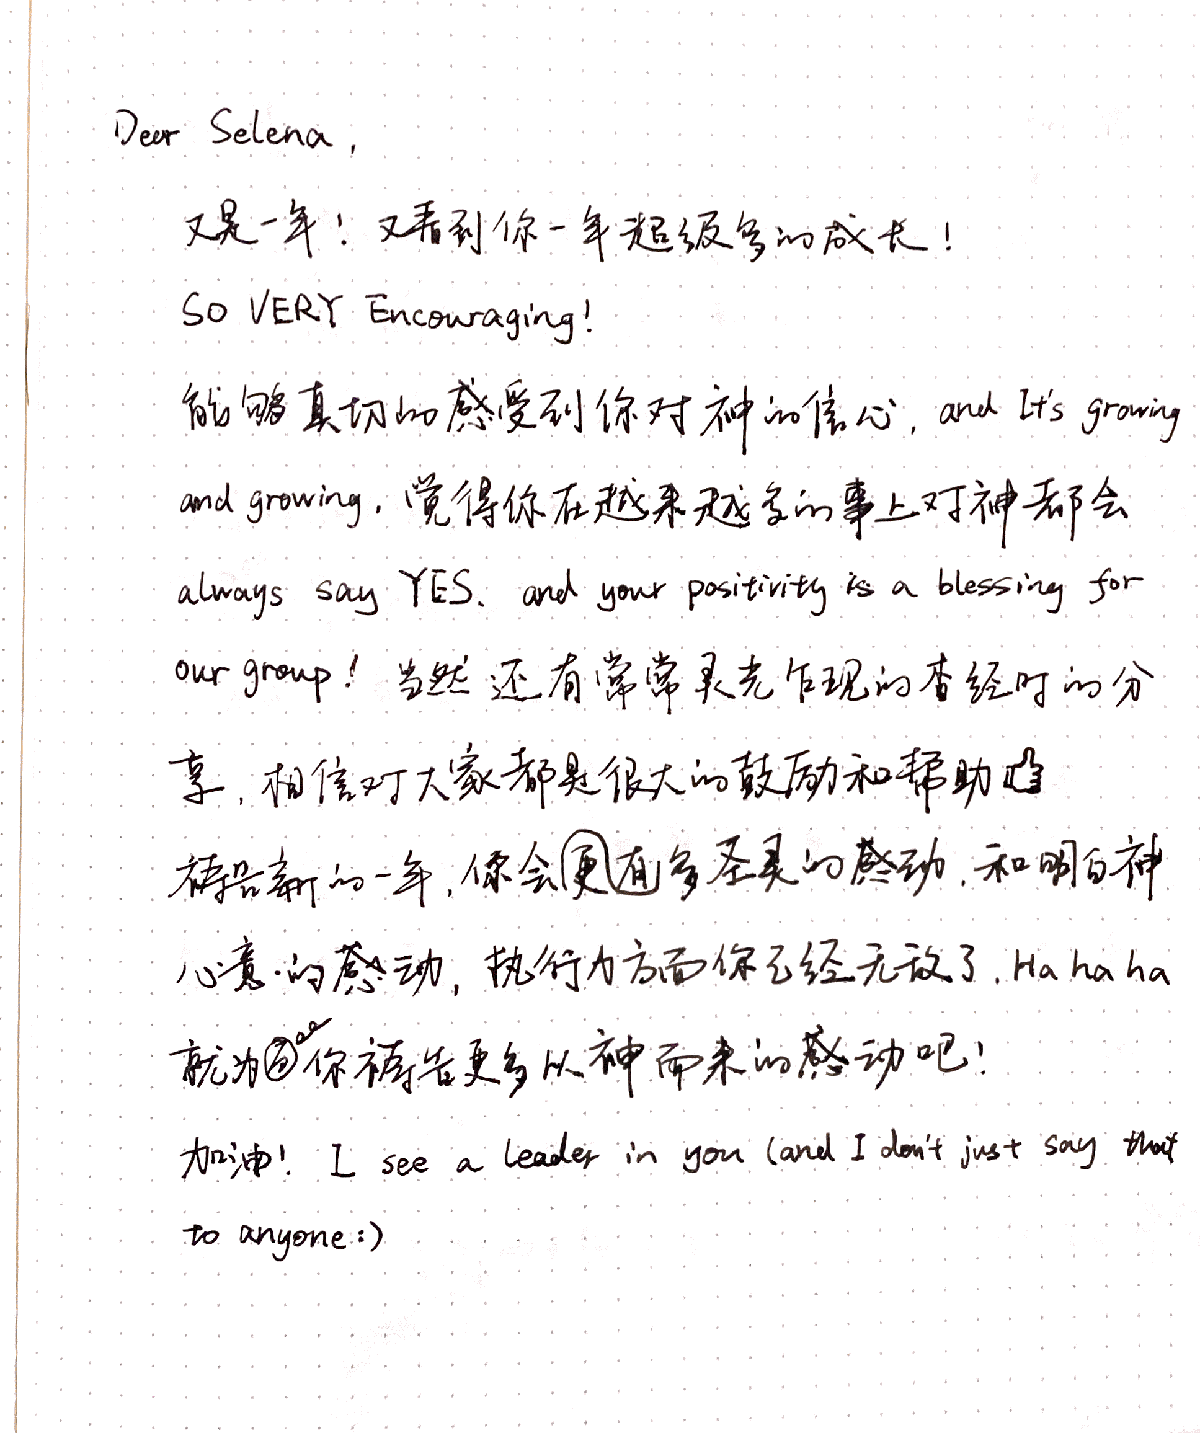 Dear Selena,
又是一年！又看到你一年超级多的成长！
SO VERY Encouraging!
能够真切的感受到你对神的信心, and It's growing
and growing. 觉得你在越来越多的事上对神都会
always say YES. and your positivity is a blessing for
our group! 当然还有常常灵光乍现的查经时的分
享, 相信对大家都是很大的鼓励和帮助
祷告新的一年, 你会更有多圣灵的感动, 和明白神
心意的感动, 执行力方面你已经无敌了. Ha ha ha
就为你祷告更多从神而来的感动吧!
加油! I see a leader in you (and I don't just say that
to anyone:)